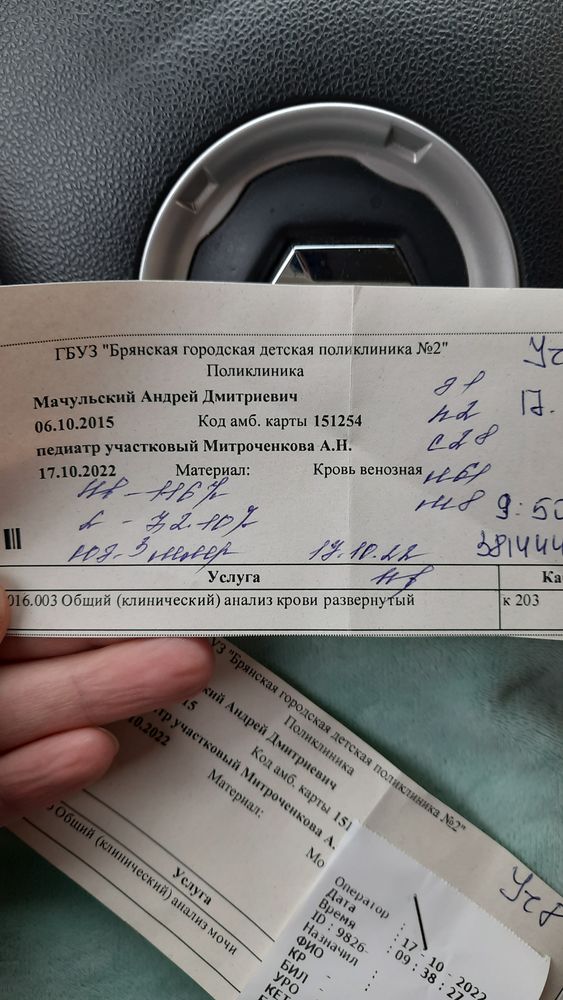 ГБУЗ "Брянская городская детская поликлиника №2"
Поликлиника
Мачульский Андрей Дмитриевич
06.10.2015 Код амб. карты 151254
педиатр участковый Митроченкова А.Н.
17.10.2022 Материал: Кровь венозная
Уч
П.
п2
с28
м8
9:50
Нв - 116 г/
L - 7,2·10⁹/
17.10.22
381444
Услуга Ка
016.003 Общий (клинический) анализ крови развернутый к 203
УЗ "Брянская городская детская поликлиника №2"
Поликлиника
кий Андрей Дмитриевич
15 Код амб. карты 151
тр участковый Митроченкова А.
10.2022 Материал: Мо
Услуга
Общий (клинический) анализ мочи
Уч8
Оператор :
Дата : 17-10-2022
Время : 09:38:27
ID : 9826
Назначил :
ФИО :
КР -
БИЛ -
УРО
КЕТ